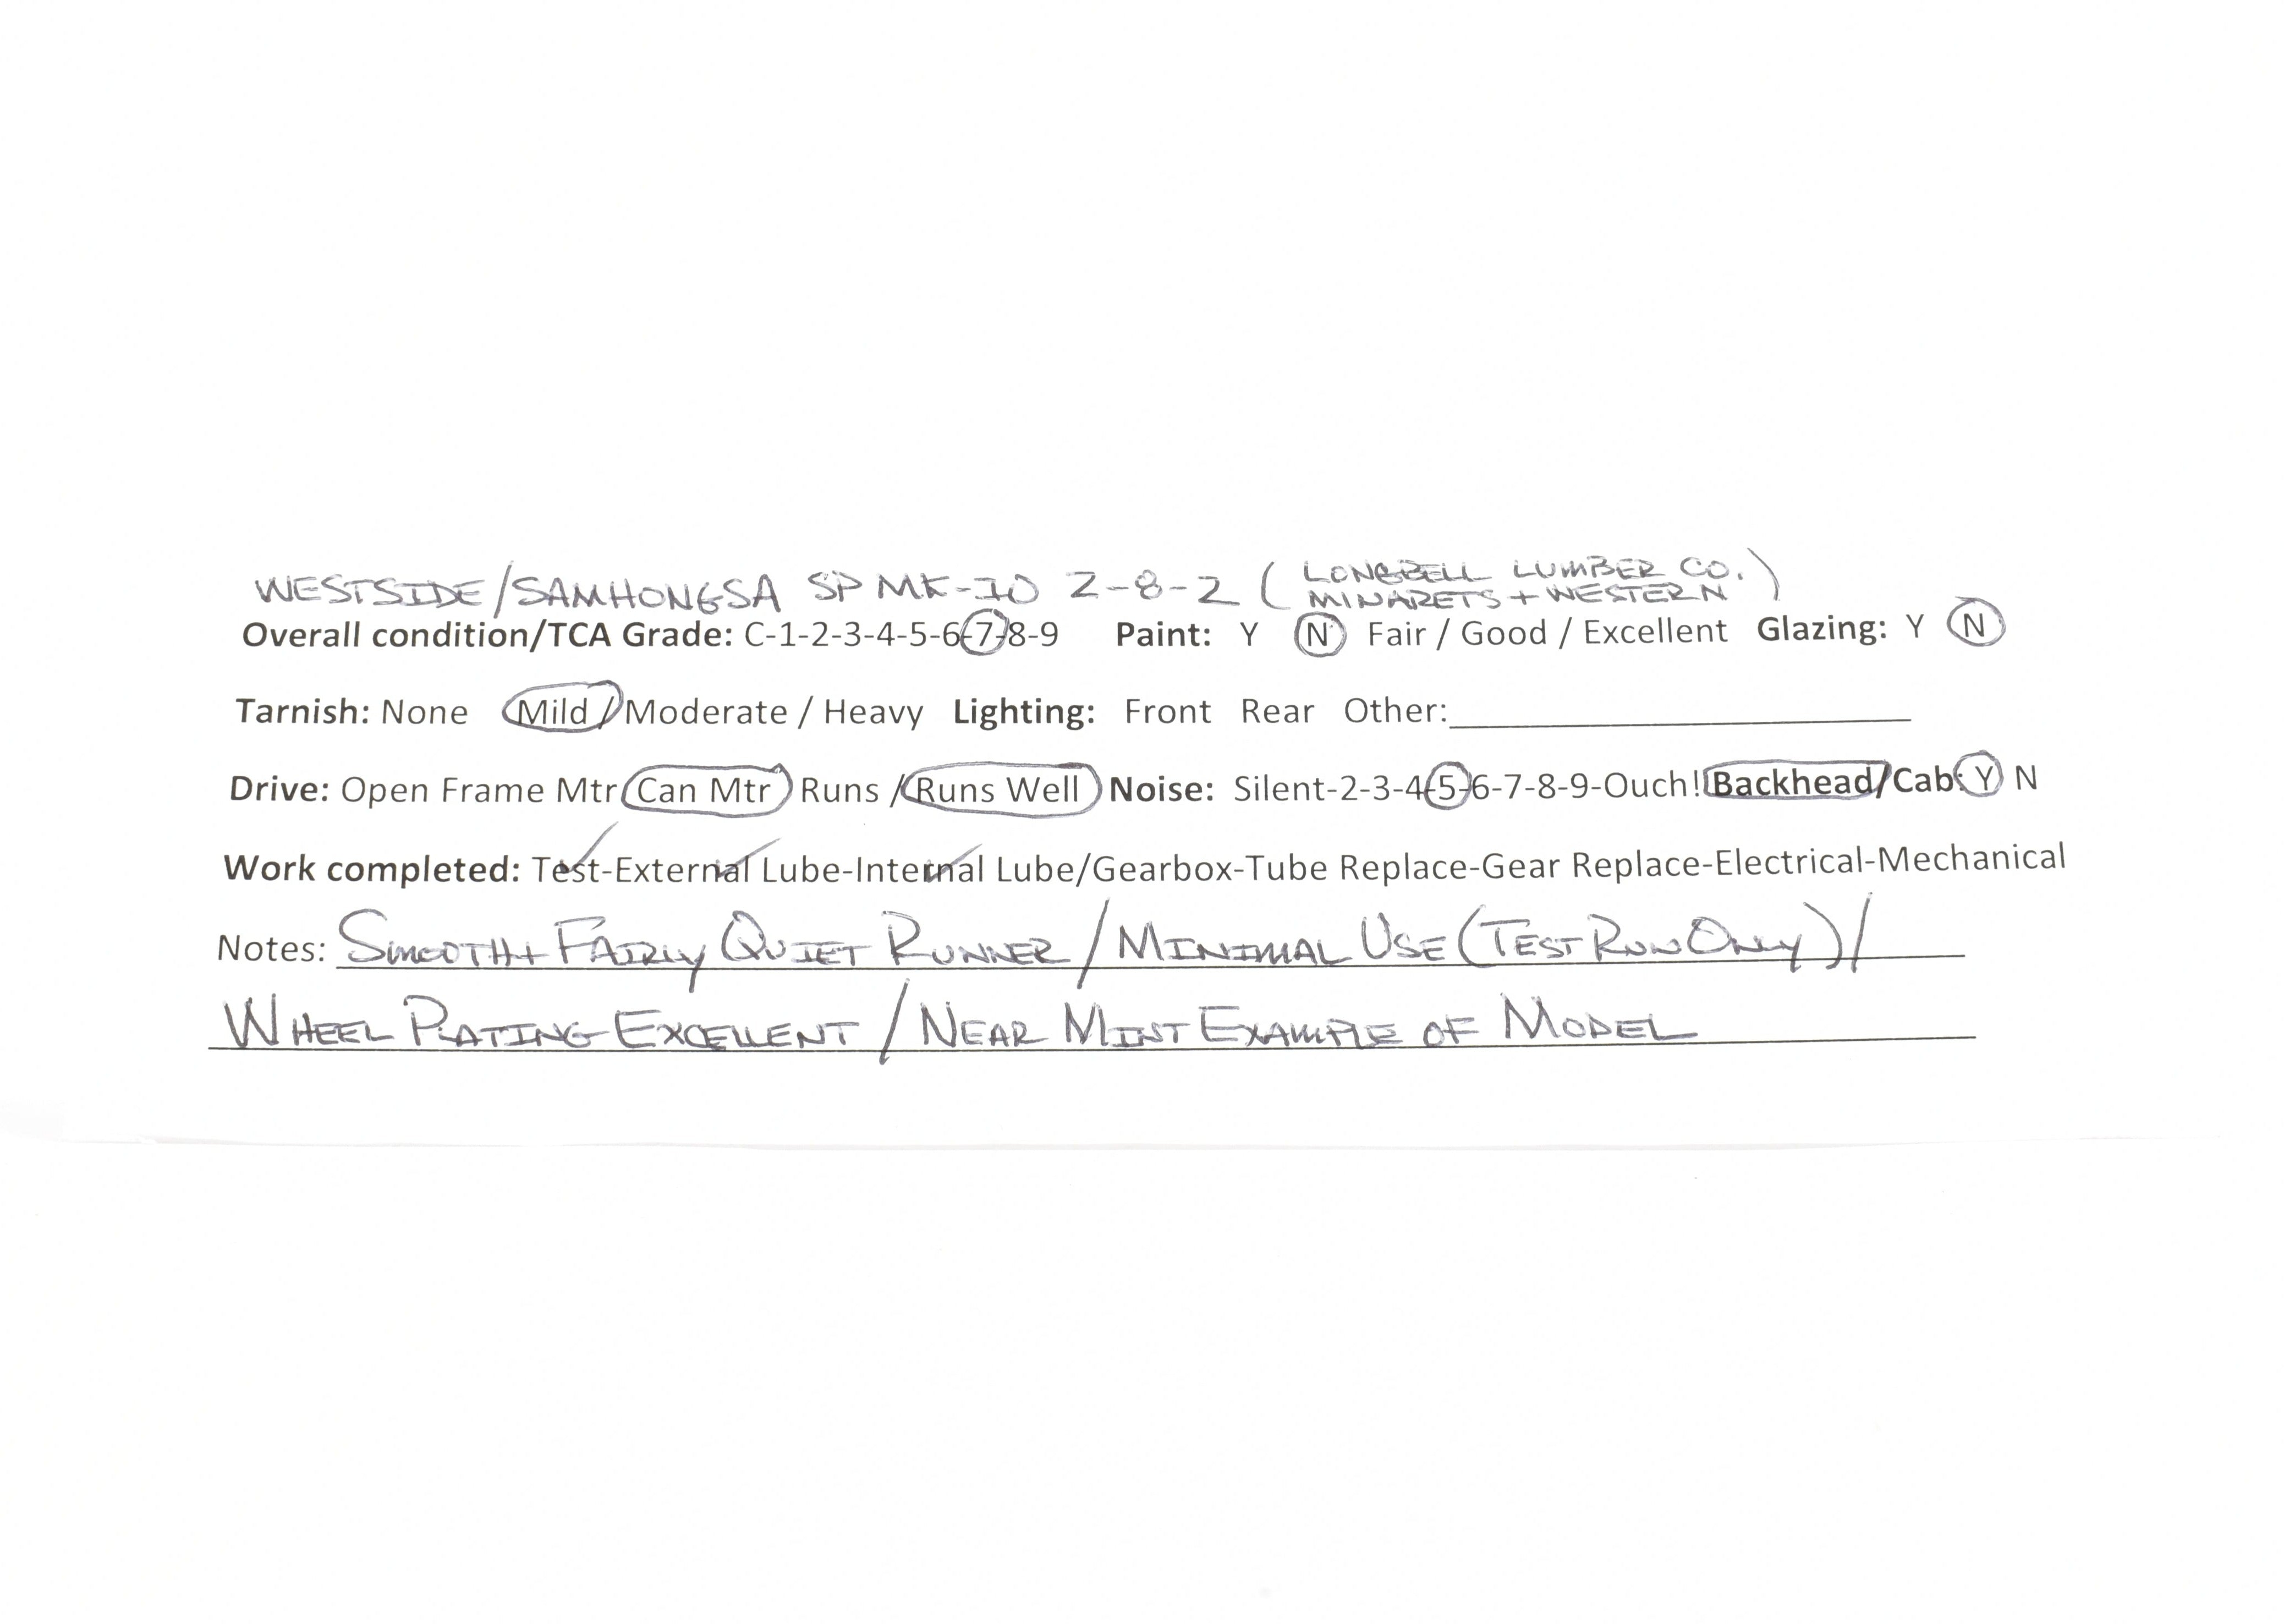 WESTSIDE/SAMHONGSA SP MK-10 2-8-2 (LONGBELL LUMBER CO.
MINARETS + WESTERN)
Overall condition/TCA Grade: C-1-2-3-4-5-6-7-8-9 Paint: Y N Fair / Good / Excellent Glazing: Y N
Tarnish: None Mild / Moderate / Heavy Lighting: Front Rear Other:
Drive: Open Frame Mtr Can Mtr Runs / Runs Well Noise: Silent-2-3-4-5-6-7-8-9-Ouch! Backhead/Cab: Y N
Work completed: Test-External Lube-Internal Lube/Gearbox-Tube Replace-Gear Replace-Electrical-Mechanical
Notes: SMOOTH + FAIRLY QUIET RUNNER / MINIMAL USE (TEST RUN ONLY) /
WHEEL PLATING EXCELLENT / NEAR MINT EXAMPLE OF MODEL